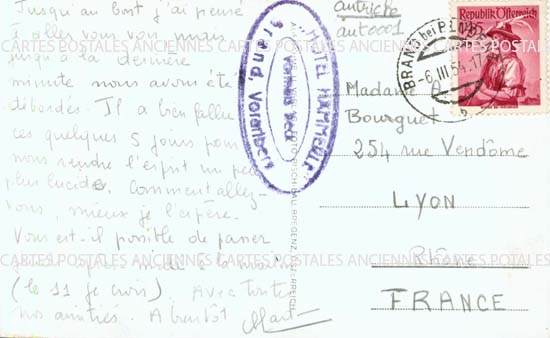 Jusqu'au bout j'ai pensé
à aller vous voir mais
jusqu'à la dernière
minute nous avons été
débordés. Il a bien fallu
ces quelques 5 jours pour
nous rendre l'esprit un peu
plus lucide. Comment allez-
vous, mieux je l'espère.
Vous est-il possible de passer
jeudi après-midi à la maison
(le 11 je crois). Avec toutes
nos amitiés. A bientôt
HOTEL HÄMMERLE
Brand Vorarlberg
autriche
aut0001
Republik Österreich
BRAND bei BLUDENZ
-6. III. 54. 17
b
Madame A.
Bourguet
254 rue Vendôme
LYON
Rhône
FRANCE
CARTES POSTALES ANCIENNES CARTES POSTALES ANCIENNES CARTES POSTALES
CARTES POSTALES ANCIENNES CARTES POSTALES ANCIENNES CARTES POSTALES
CARTES POSTALES ANCIENNES CARTES POSTALES ANCIENNES CARTES POSTALES